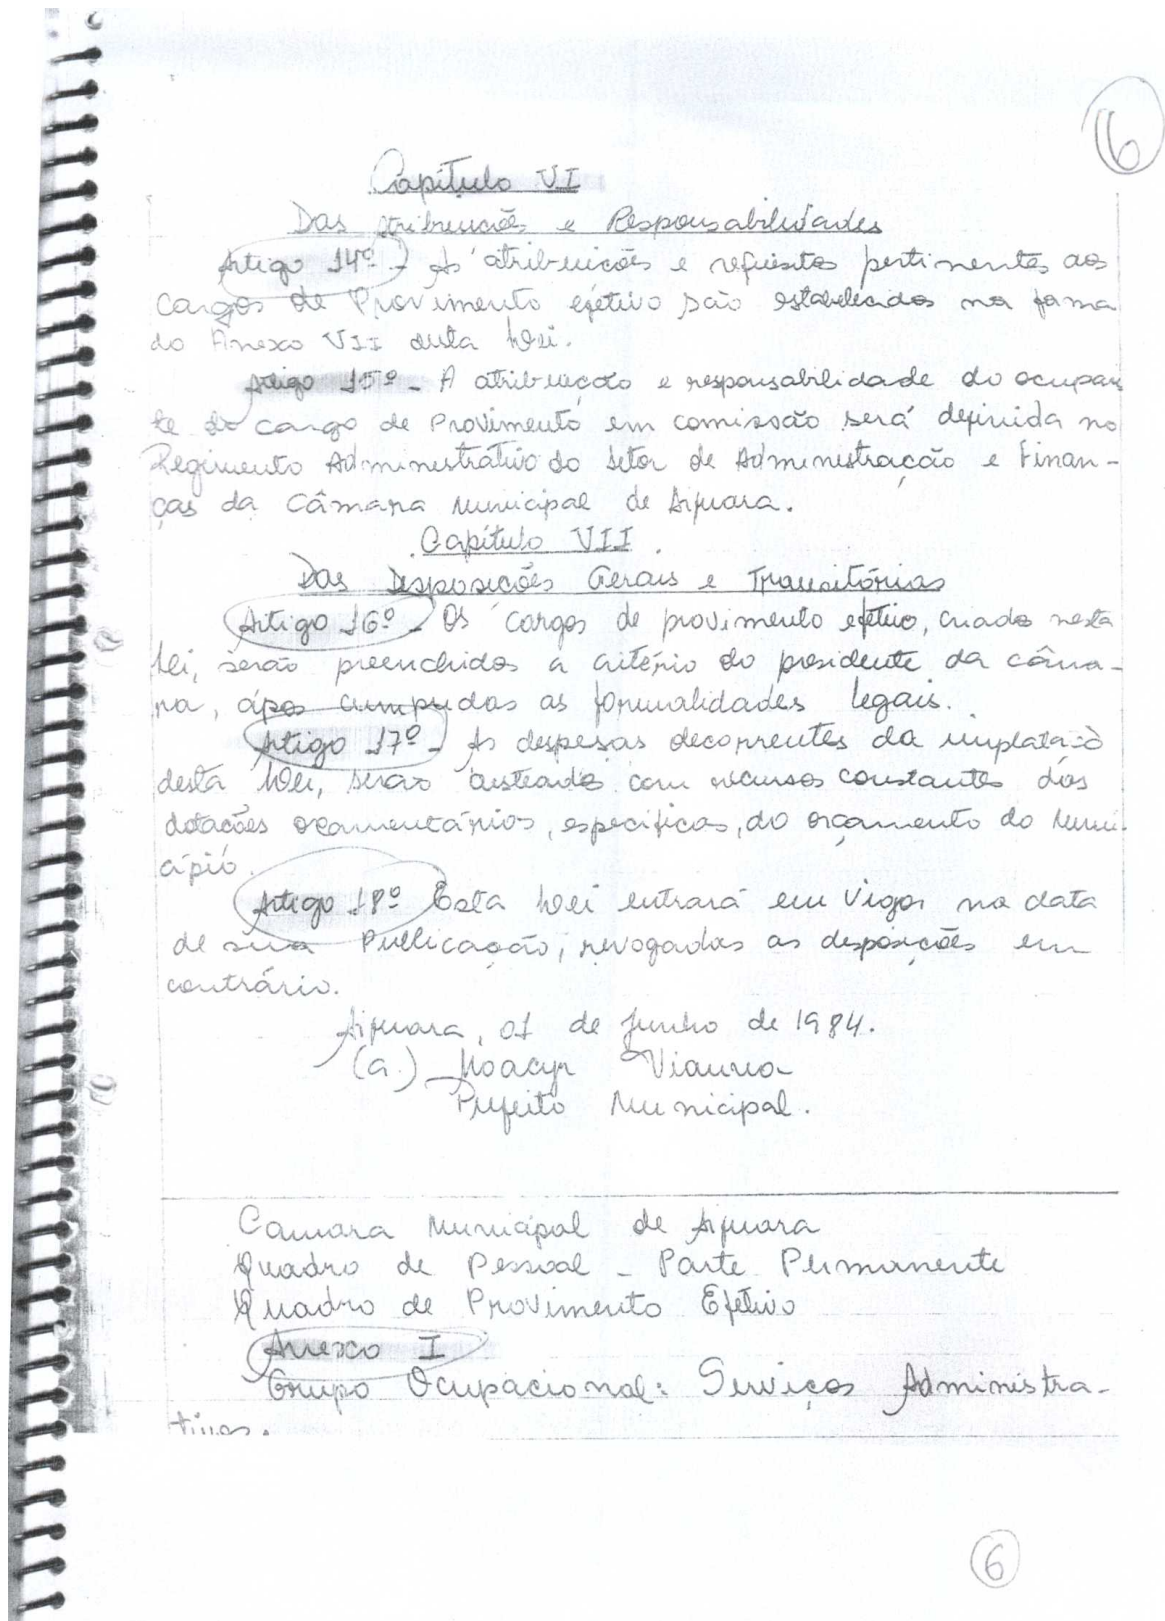 6
Capítulo VI
Das Atribuições e Responsabilidades
Artigo 14º - As atribuicões e requisitos pertinentes aos
cargos de Provimento efetivo são estabelecidos na forma
do Anexo VII desta Lei.
Artigo 15º - A atribuição e responsabilidade do ocupan
te do cargo de Provimento em comissão será definida no
Regimento Administrativo do Setor de Administração e Finan-
ças da Câmara Municipal de Aiquara.
Capítulo VII
Das Disposições Gerais e Transitórias
Artigo 16º - Os cargos de provimento efetivo, criado nesta
Lei, serão preenchidos a critério do presidente da câma-
ra, após cumpridas as formalidades legais.
Artigo 17º - As despesas decorrentes da implatacõ
desta Lei, serão custeados com recursos constantes dos
dotacões orcamentários, específicas, do orçamento do Muni-
cípio.
Artigo 18º Esta Lei entrará em Vigor na data
de sua Publicação, revogadas as disposições em
contrário.
Aiquara, 01 de Junho de 1984.
(a.) Moacyr Vianna
Prefeito Municipal.
Camara Municipal de Aiquara
Quadro de Pessoal - Parte Permanente
Quadro de Provimento Efetivo
Anexo I
Grupo Ocupacional: Serviços Administra-
tivos.
6